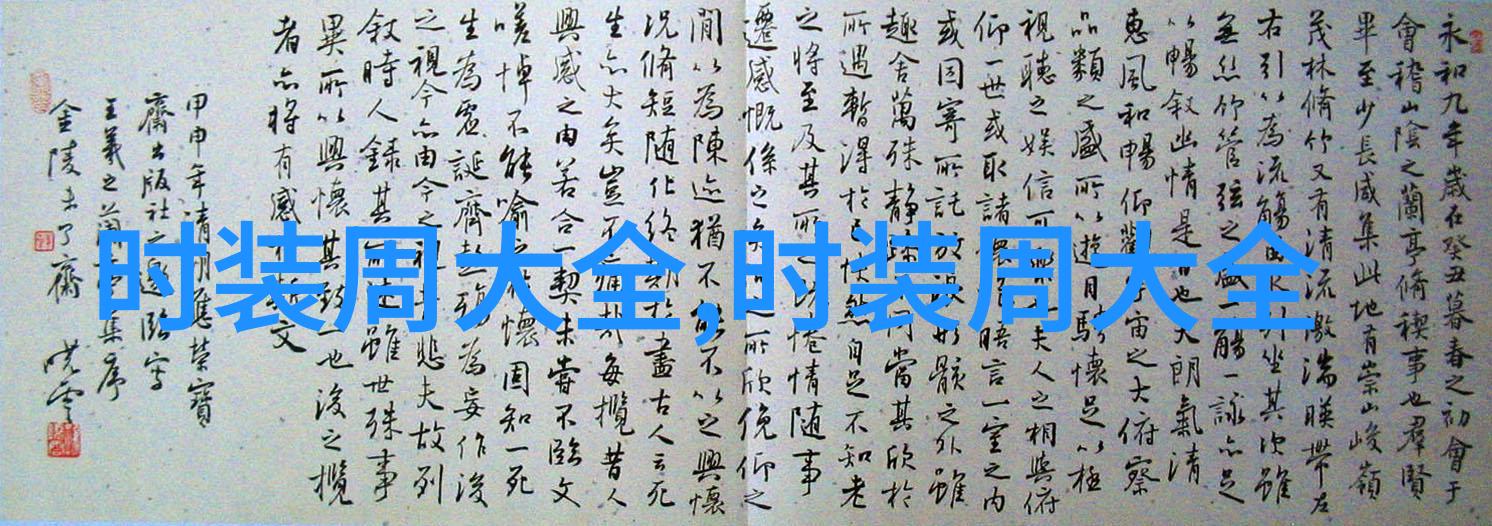 永和九年歲在癸丑暮春之初會于
會稽山陰之蘭亭脩稧事也羣賢
畢至少長咸集此地有崇山峻嶺
茂林脩竹又有清流激湍暎帶左
右引以為流觴曲水列坐其次雖
無絲竹管弦之盛一觴一詠亦足
以暢敘幽情是日也天朗氣清
惠風和暢仰觀宇宙之大俯察
品類之盛所以遊目騁懷足以極
視聽之娛信可樂也夫人之相與俯
仰一世或取諸懷抱晤言一室之內
或因寄所託放浪形骸之外雖
趣舍萬殊靜躁不同當其欣於
所遇暫得於己快然自足不知老
之將至及其所之既惓情隨事
遷感慨係之矣向之所欣俛仰之
間以為陳迹猶不能不以之興懷
況脩短隨化終期於盡古人云死
生亦大矣豈不痛哉每攬昔人
興感之由若合一契未嘗不臨文
嗟悼不能喻之於懷固知一死
生為虛誕齊彭殤為妄作後
之視今亦由今之視昔悲夫故列
敘時人錄其所述雖世殊事
異所以興懷其致一也後之攬
者亦將有感於斯文
甲申年清明應榮寶
齋出版社之邀臨寫
王羲之蘭亭集序
金陵未了齋 曉雲
时装周大全,时装周大全